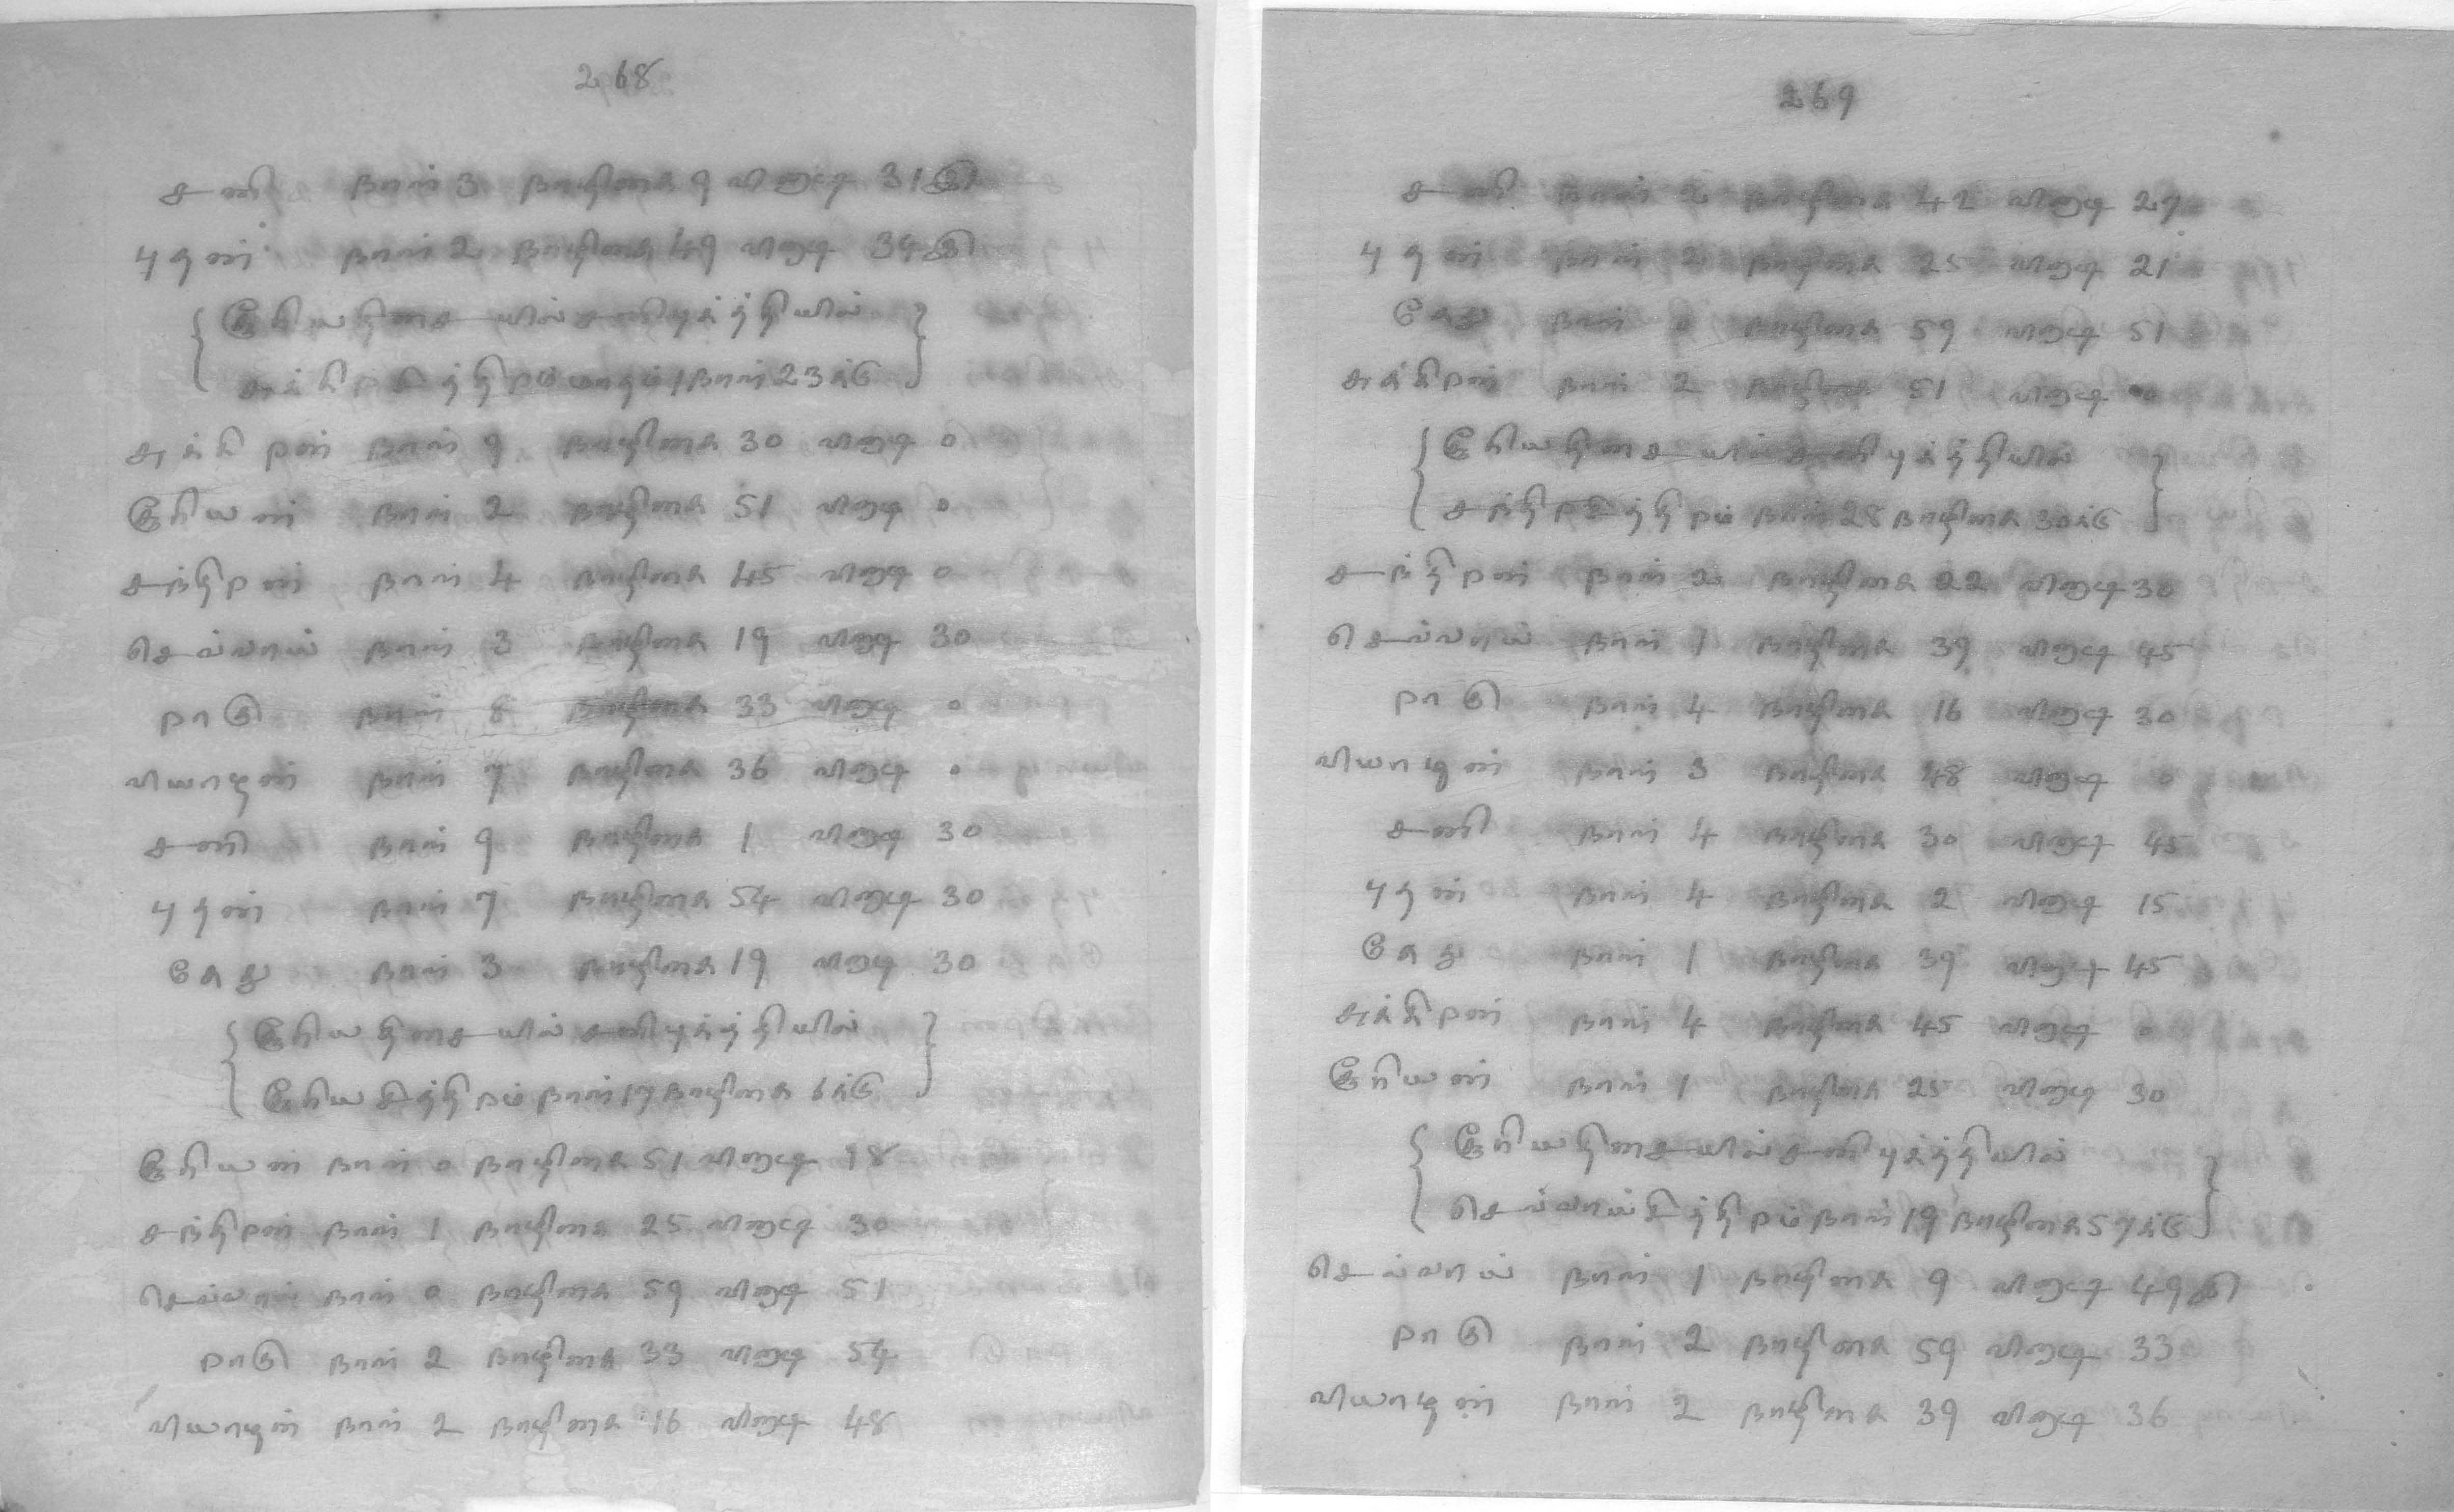 268
சனி நாள் 3 நாழிகை 9 வினாடி 31இ
புதன் நாள் 2 நாழிகை 49 வினாடி 34இ
{ சூரியதிசையில் சனிபுக்த்தியில்
சுக்கிரசித்திரம் யாதும் / நாள் 23க்கு }
சுக்கிரன் நாள் 9 நாழிகை 30 வினாடி 0
சூரியன் நாள் 2 நாழிகை 51 வினாடி 0
சந்திரன் நாள் 4 நாழிகை 45 வினாடி 0
செவ்வாய் நாள் 3 நாழிகை 19 வினாடி 30
ராகு நாள் 8 நாழிகை 33 வினாடி 0
வியாழன் நாள் 7 நாழிகை 36 வினாடி 0
சனி நாள் 9 நாழிகை 1 வினாடி 30
புதன் நாள் 7 நாழிகை 54 வினாடி 30
கேது நாள் 3 நாழிகை 19 வினாடி 30
{ சூரியதிசையில் சனிபுக்த்தியில்
சூரியசித்திரம் நாள் 17 நாழிகை 6க்கு }
சூரியன் நாள் 0 நாழிகை 51 வினாடி 18
சந்திரன் நாள் 1 நாழிகை 25 வினாடி 30
செவ்வாய் நாள் 0 நாழிகை 59 வினாடி 51
ராகு நாள் 2 நாழிகை 33 வினாடி 54
வியாழன் நாள் 2 நாழிகை 16 வினாடி 48
269
சனி நாள் 2 நாழிகை 42 வினாடி 27
புதன் நாள் 2 நாழிகை 25 வினாடி 21
கேது நாள் 0 நாழிகை 59 வினாடி 51
சுக்கிரன் நாள் 2 நாழிகை 51 வினாடி 0
{ சூரியதிசையில் சனிபுக்த்தியில்
சந்திரசித்திரம் நாள் 28 நாழிகை 30க்கு }
சந்திரன் நாள் 2 நாழிகை 22 வினாடி 30
செவ்வாய் நாள் 1 நாழிகை 39 வினாடி 45
ராகு நாள் 4 நாழிகை 16 வினாடி 30
வியாழன் நாள் 3 நாழிகை 48 வினாடி 0
சனி நாள் 4 நாழிகை 30 வினாடி 45
புதன் நாள் 4 நாழிகை 2 வினாடி 15
கேது நாள் 1 நாழிகை 39 வினாடி 45
சுக்கிரன் நாள் 4 நாழிகை 45 வினாடி 0
சூரியன் நாள் 1 நாழிகை 25 வினாடி 30
{ சூரியதிசையில் சனிபுக்த்தியில்
செவ்வாய்சித்திரம் நாள் 19 நாழிகை 57க்கு }
செவ்வாய் நாள் 1 நாழிகை 9 வினாடி 49இ
ராகு நாள் 2 நாழிகை 59 வினாடி 33
வியாழன் நாள் 2 நாழிகை 39 வினாடி 36